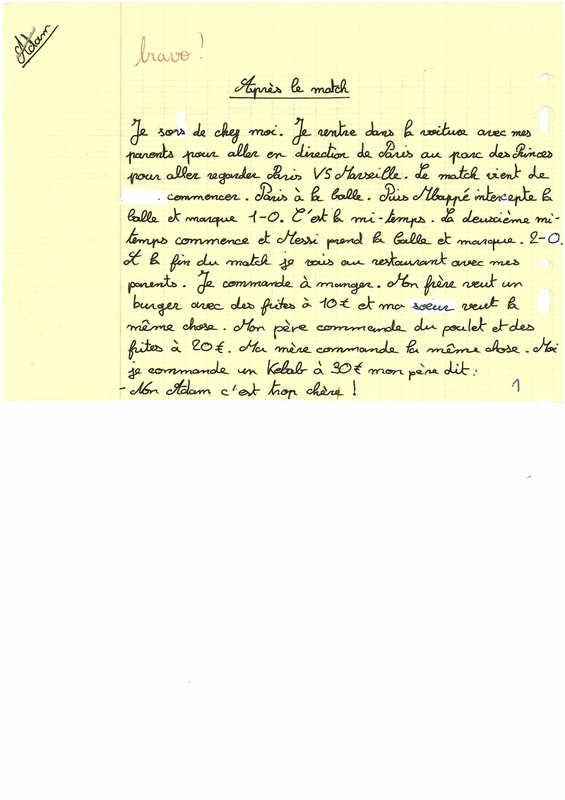 Adam
bravo !
Après le match
Je sors de chez moi. Je rentre dans la voiture avec mes
parents pour aller en direction de Paris au parc des Princes
pour aller regarder Paris VS Marseille. Le match vient de
commencer. Paris à la balle. Puis Mbappé intercepte la
balle et marque 1-0. C'est la mi-temps. La deuxième mi-
temps commence et Messi prend la balle et marque. 2-0.
A la fin du match je vais au restaurant avec mes
parents. Je commande à manger. Mon frère veut un
burger avec des frites à 10€ et ma soeur veut la
même chose. Mon père commande du poulet et des
frites à 20€. Ma mère commande la même chose. Moi
je commande un Kebab à 30€ mon père dit :
- Non Adam c'est trop chère !
1